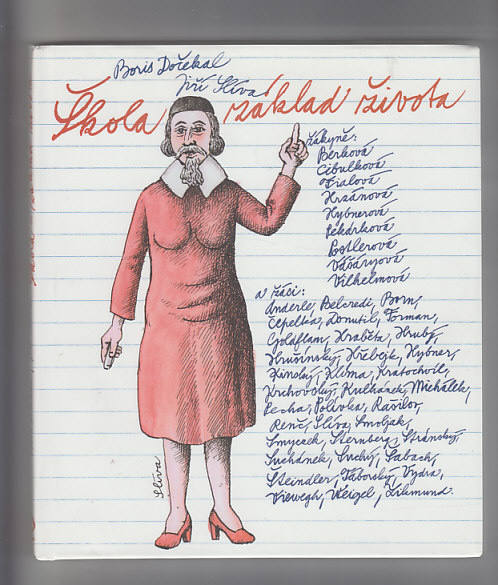 Boris Dočekal
Jiří Slíva
Škola základ života
žákyně:
Berková
Cibulková
Fialová
Hrzánová
Kybnerová
Pekárková
Postlerová
Vášáryová
Vilhelmová
a žáci:
Anderle, Belcredi, Born,
Čepelka, Donutil, Forman,
Goldflam, Hraběta, Hrubý,
Hrušínský, Hřebejk, Hybner,
Kinský, Klíma, Kratochvíl,
Kuchovský, Kulhánek, Michálek,
Pecha, Polívka, Rašilov,
Renč, Slíva, Smoljak,
Smyczek, Sternberg, Stránský,
Suchánek, Suchý, Šabach,
Steindler, Táborský, Vydra,
Viewegh, Weigel, Zikmund.
Slíva